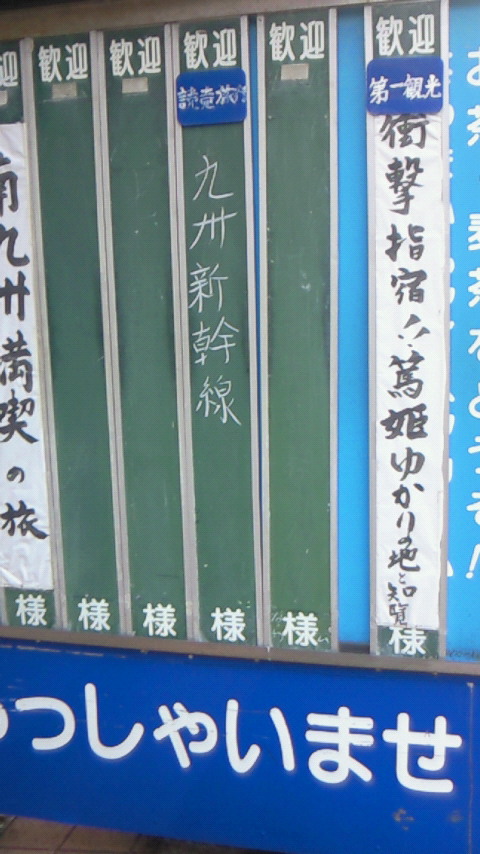 歓迎
第一観光
衝撃指宿!!篤姫ゆかりの地と知覧
様
歓迎
様
歓迎
読売旅行
九州新幹線
様
歓迎
様
歓迎
様
迎
南九州満喫の旅
様
っしゃいませ